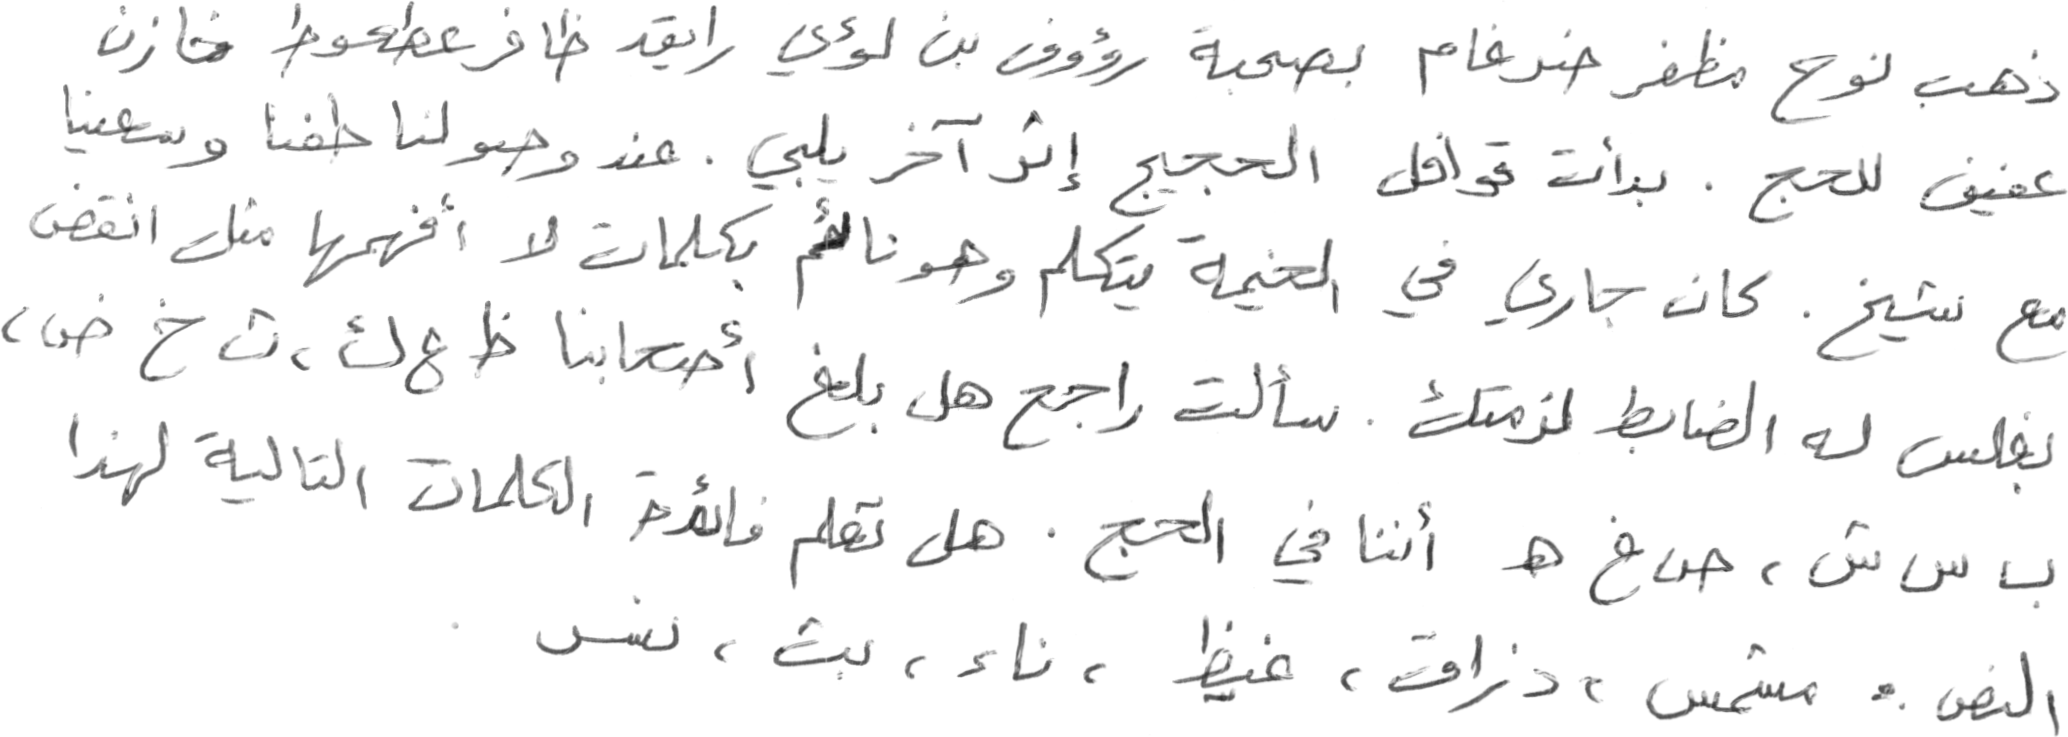 ذهب نوح مظفر ضرغام بصحبة رؤوف بن لؤي رايقد ظافر عطعوط خازن
عفيف للحج . بدأت قوافل الحجيج إثر آخر يلبي . عند وصولنا طفنا وسعينا
مع شيخ . كان جاري في الخيمة يتكلم وهو نائم بكلمات لا أفهمها مثل انقض
بغلس له الضابط لزمتك . سألت راجح هل بلغ أصحابنا ظ ع ك ، ث خ ض ،
ب س ش ، ص غ ه أننا في الحج . هل تعلم فائدة الكلمات التالية لهذا
النص . مشمس ، دزاقت ، غيظ ، ناء ، بث ، نفس .